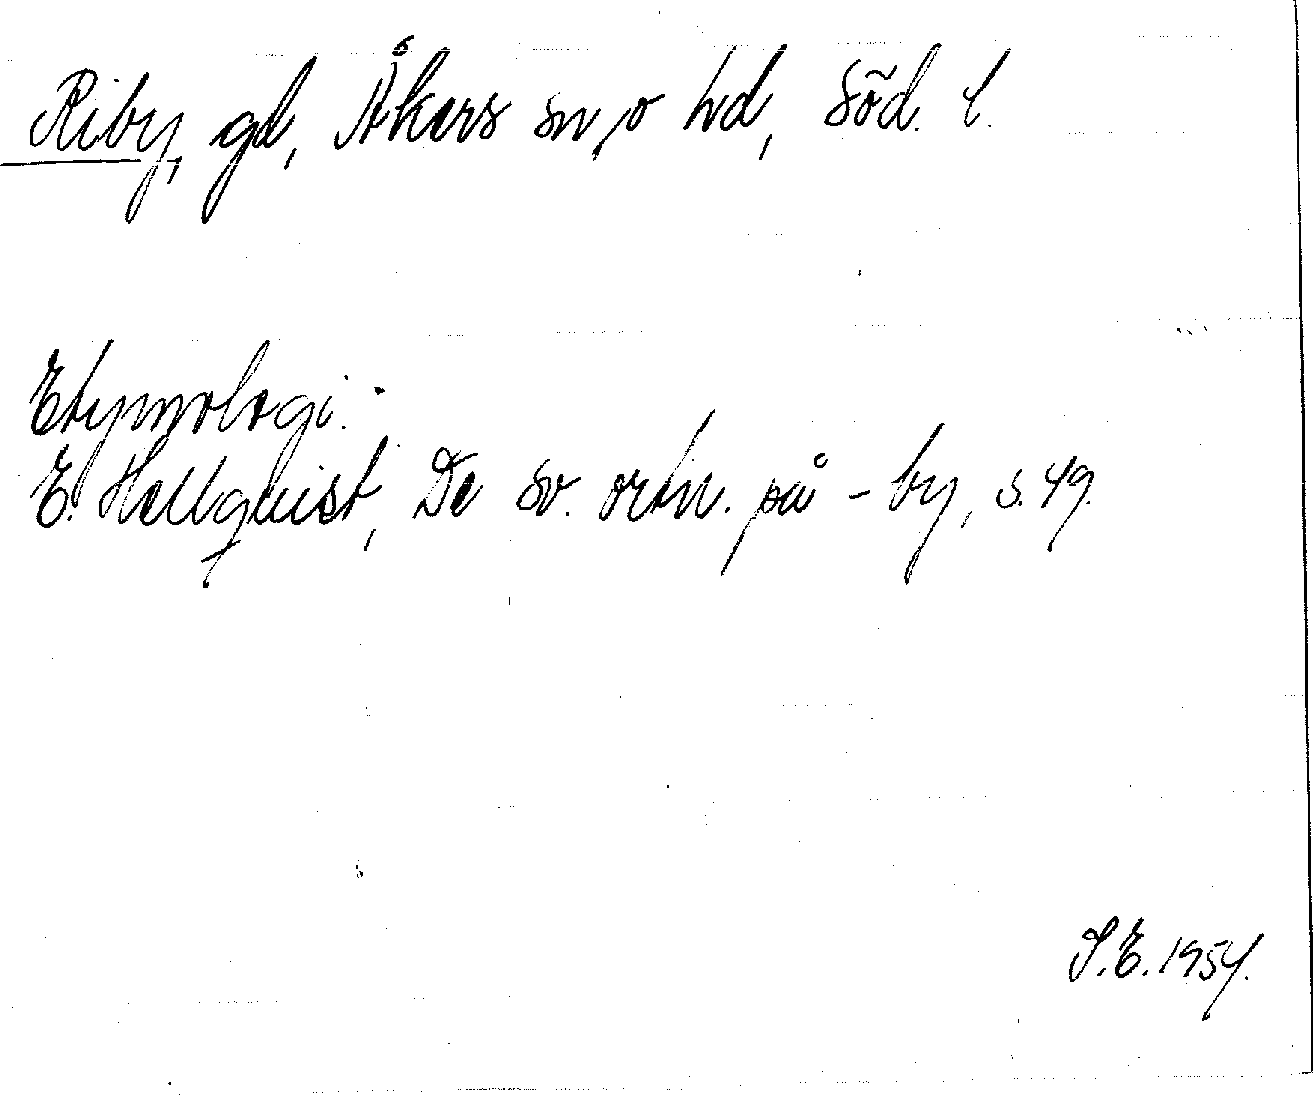 Riby, gd, Åkers sn, o hd, Söd. l.
Etymologi:
E. Hellquist, De sv. ortn. på -by, s. 49.
S.E. 1954.